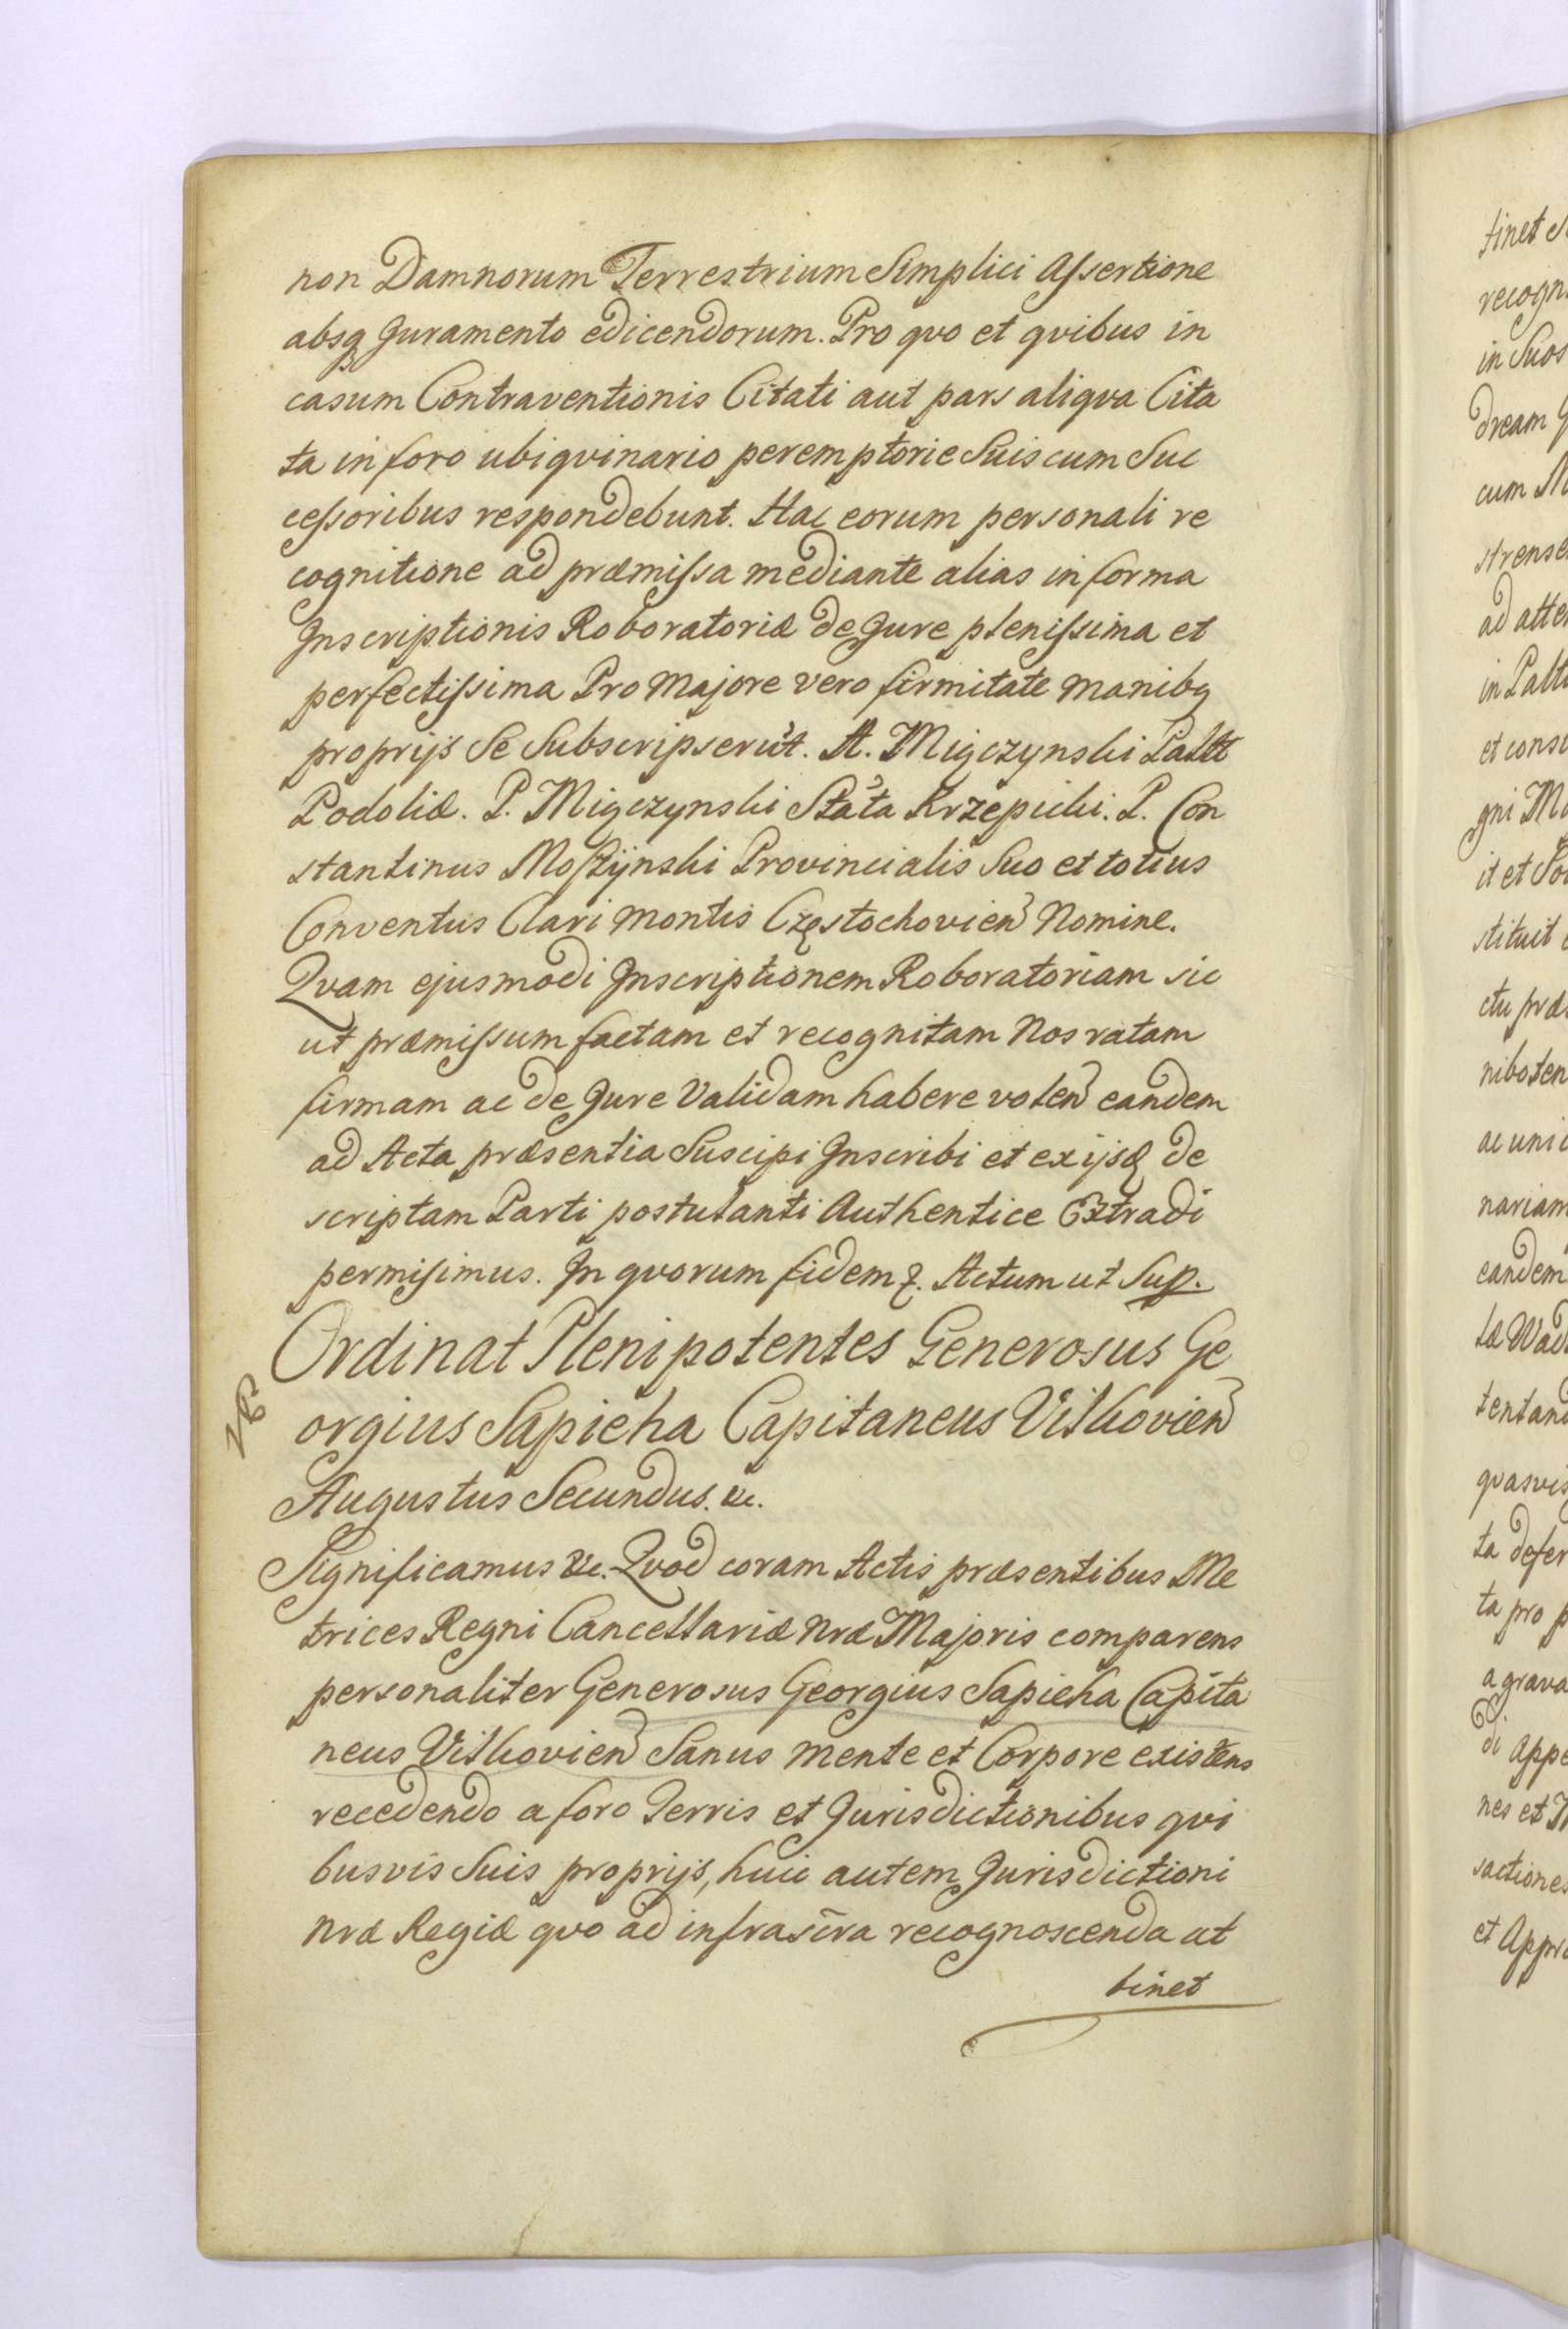 non Damnorum Terrestrium Simplici Assertione
absq Juramento edicendorum. Pro qvo et qvibus in
casum Contraventionis Citati aut pars aliqva Cita
ta in foro ubiqvinario peremptorie Suis cum Suc
cessoribus respondebunt. Hac eorum personali re
cognitione ad præmissa mediante alias in forma
Inscriptionis Roboratoriæ de Jure plenissima et
perfectissima Pro Majore vero firmitate manibq
proprijs Se Subscripserūt. A. Miączynski Paltt
Podoliæ. P. Miączynski Stata Krzepicki. P. Con
stantinus Moszÿnski Provincialis Suo et totius
Conventus Clari Montis Częstochovien Nomine.
Qvam ejusmodi Inscriptionem Roboratoriam sic
ut præmissum factam et recognitam Nos ratam
firmam ac de Jure Validam habere volen eandem
ad Acta præsentia Suscipi Inscribi et ex ijsd de
scriptam Parti postulanti Authentice Extradi
permisimus. In qvorum fidem &. Actum ut Sup.
Ordinat Plenipotentes Generosus Ge
orgius Sapieha Capitaneus Vilkovien
Augustus Secundus. &c.
Significamus &c. Qvod coram Actis præsentibus Me
trices Regni Cancellariæ Nræ Majoris comparens
personaliter Generosus Georgius Sapieha Capita
neus Vilkovien Sanus mente et Corpore existens
recedendo a foro Terris et Jurisdictionibus qvi
busvis Suis proprijs, huic autem Jurisdictioni
Nræ Regiæ qvo ad infrascra recognoscenda at
tinet
tinet
recogn
in Suos
dream
cum
strense
ad atte
in Palt
et cons
gni
it et
stituit
ctu præ
nibo ten
ac uni
nariam
eandem
tæ Wad
tentan
qvasvis
ta defer
ta pro p
agrava
di Appe
nes et
sactiones
et Appr